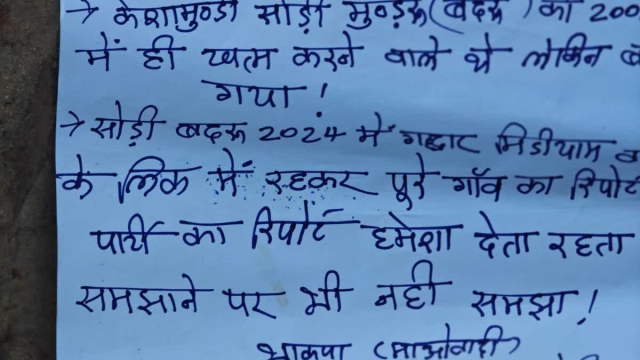 → केशामुण्डा सोड़ी मुण्ड़रू (बदरू) का 200
में ही खत्म करने वाले थे लेकिन ब
गया !
→ सोड़ी बदरू 2024 में गद्दार मिडीयाम
के लिंक में रहकर पूरे गॉव का रिपोर्ट
पार्टी का रिपोर्ट हमेशा देता रहता
समझाने पर भी नही समझा !
भाकपा (माओवादी)